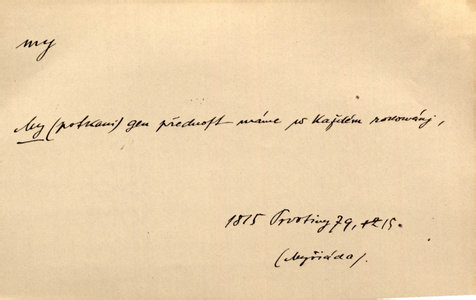 my
My (potkani) gen přednost máme w každém rokowánj,
1815 Prvotiny 79, ř. 15.
(Myřiáda).